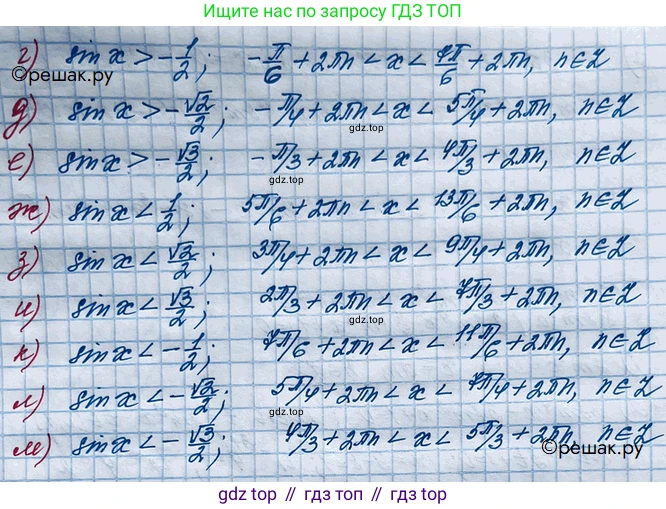 Ищите нас по запросу ГДЗ ТОП
г) sin x > -1/2; -π/6 + 2πn < x < 7π/6 + 2πn, n∈Z
©решак.ру
д) sin x > -√2/2; -π/4 + 2πn < x < 5π/4 + 2πn, n∈Z
gdz.top
е) sin x > -√3/2; -π/3 + 2πn < x < 4π/3 + 2πn, n∈Z
gdz.top
ж) sin x < 1/2; 5π/6 + 2πn < x < 13π/6 + 2πn, n∈Z
з) sin x < √2/2; 3π/4 + 2πn < x < 9π/4 + 2πn, n∈Z
и) sin x < √3/2; 2π/3 + 2πn < x < 7π/3 + 2πn, n∈Z
gdz.top
к) sin x < -1/2; 7π/6 + 2πn < x < 11π/6 + 2πn, n∈Z
л) sin x < -√2/2; 5π/4 + 2πn < x < 7π/4 + 2πn, n∈Z
gdz.top
м) sin x < -√3/2; 4π/3 + 2πn < x < 5π/3 + 2πn, n∈Z
©решак.ру
gdz top // гдз топ // gdz top